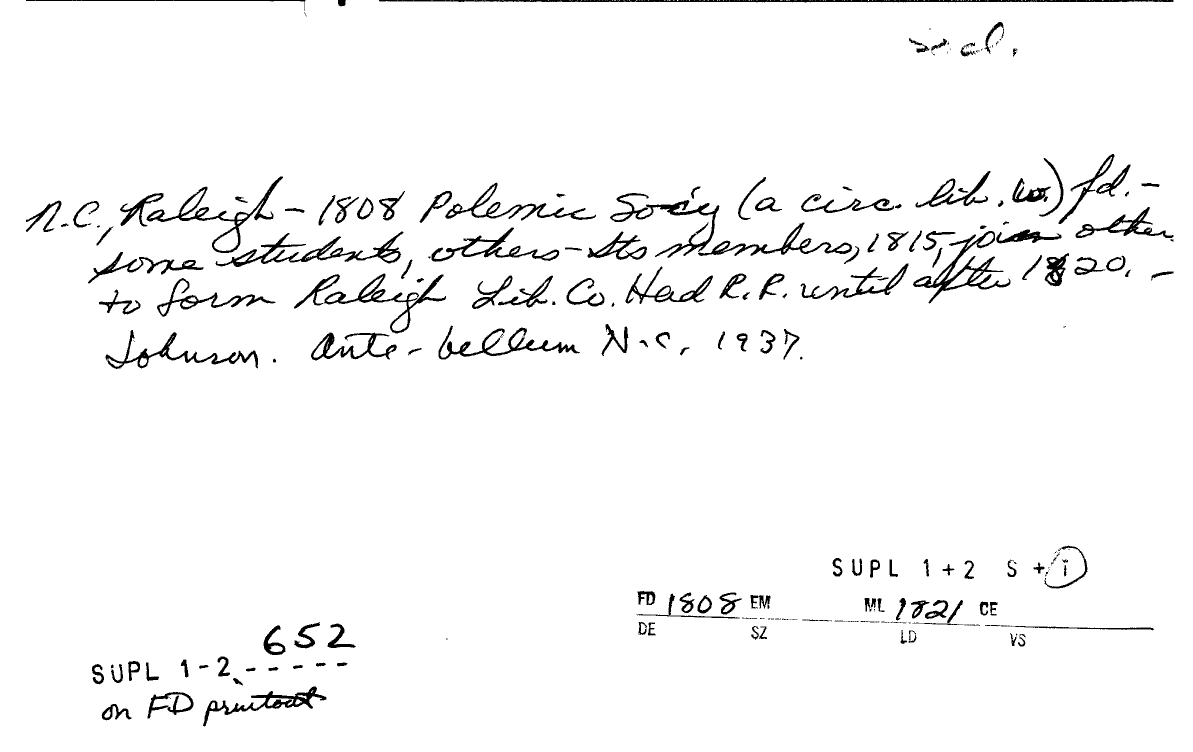 socl.
N.C., Raleigh - 1808 Polemic Soc'y (a circ. lib. ) fd. -
some students, others - Its members, 1815, join other
to form Raleigh Lib. Co. Had R.R. until after 1820. -
Johnson. Ante-bellum N.C, 1937.
SUPL 1+2 S+i
FD 1808 EM ML 1821 CE
DE SZ LD VS
652
SUPL 1-2 - - - - -
on FD printout